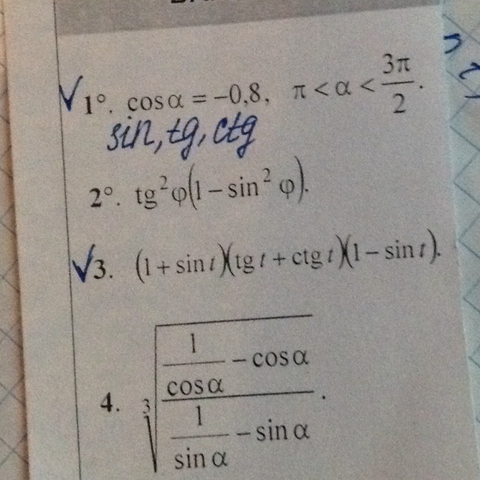 1°. cos α = −0,8, π < α < 3π/2.
sin, tg, ctg
2°. tg² φ(1 − sin² φ).
3. (1 + sin t)(tg t + ctg t)(1 − sin t).
4. ∛((1/cos α − cos α)/(1/sin α − sin α)).